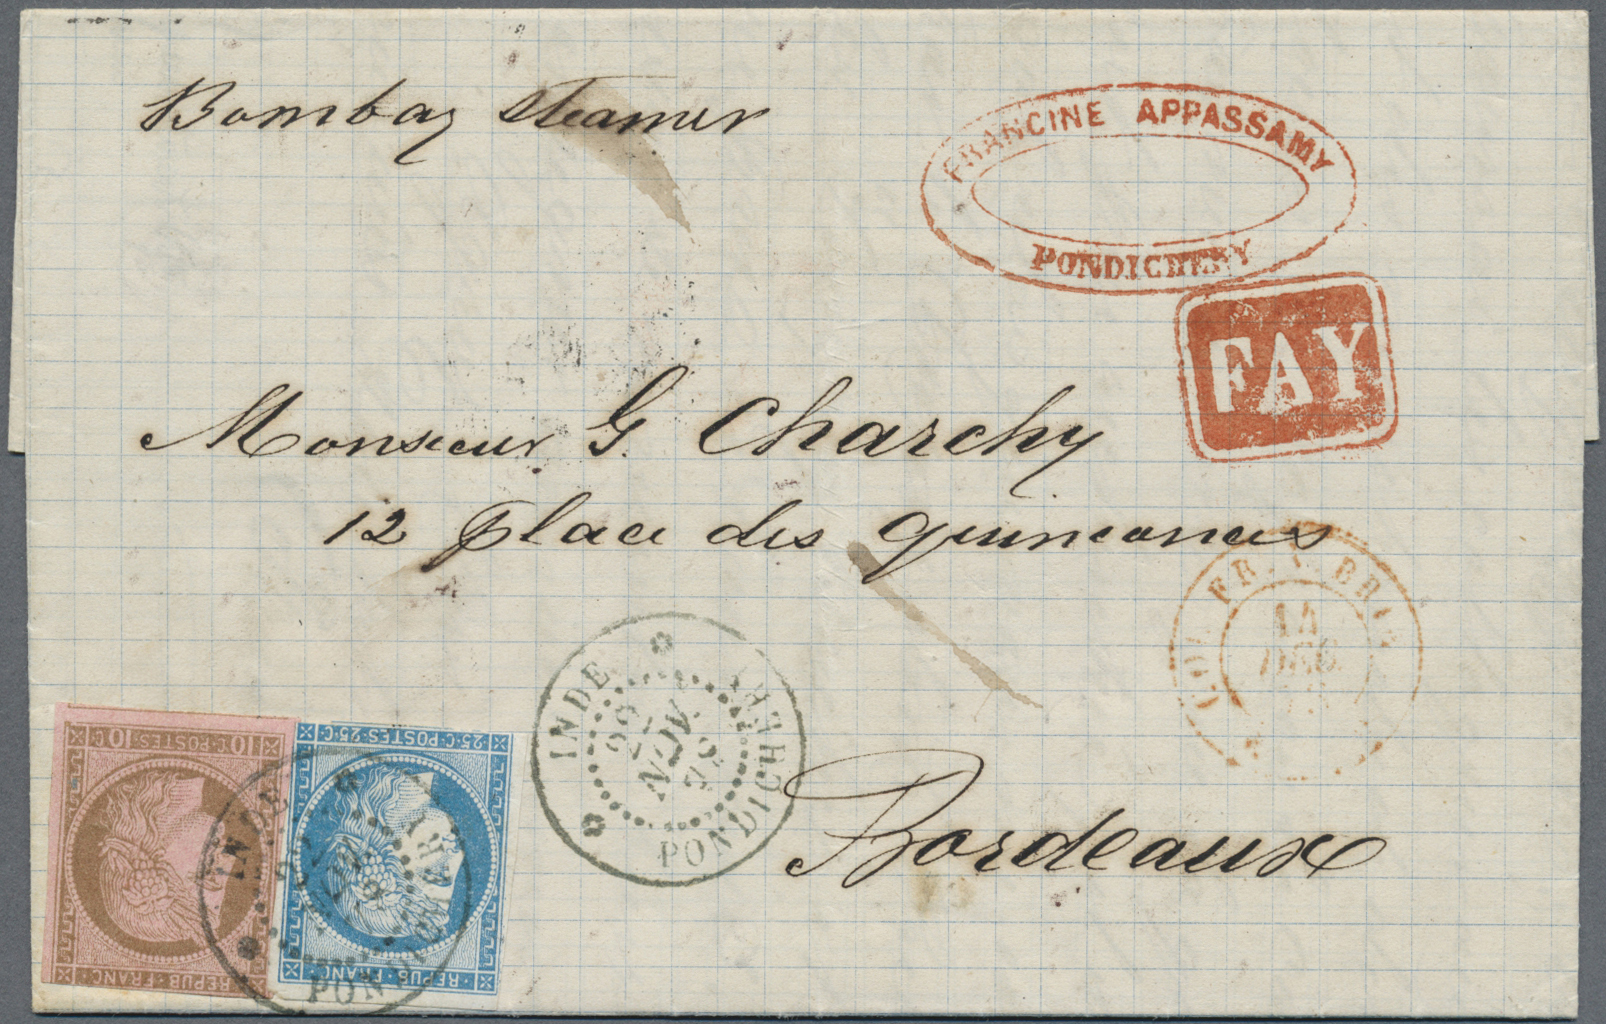 Bombay Steamer
FRANCINE APPASSAMY
PONDICHERY
FAY
Monsieur G. Charchy
12 Place des quinconces
COL. FR. V. BRIN
14
DEC
INDE
PONDICHERY
22
NOV
76
Bordeaux
10 C. POSTES 10 C
REPUB. FRANC.
25 C. POSTES 25 C.
REPUB. FRANC.
INDE
22
PON